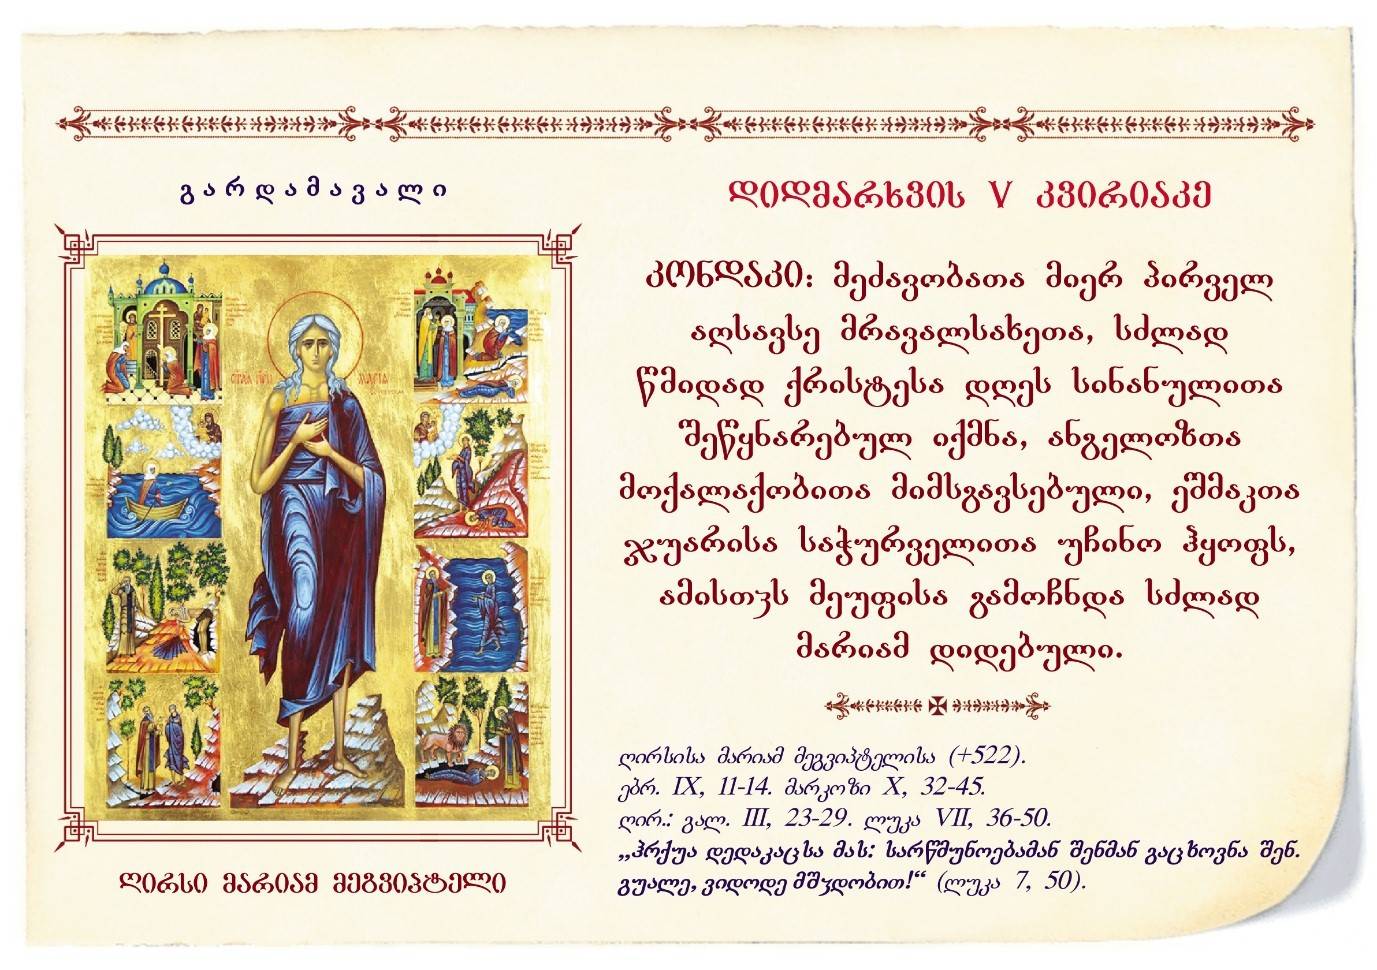 გარდამავალი
ᲓᲘᲓᲛᲐᲠᲮᲕᲘᲡ V ᲙᲕᲘᲠᲘᲐᲙᲔ
ᲙᲝᲜᲓᲐᲙᲘ: მეძავობათა მიერ პირველ
აღსავსე მრავალსახეთა, სძლად
წმიდად ქრისტესა დღეს სინანულითა
შეწყნარებულ იქმნა, ანგელოზთა
მოქალაქობითა მიმსგავსებული, ეშმაკთა
ჯუარისა საჭურველითა უჩინო ჰყოფს,
ამისთჳს მეუფისა გამოჩნდა სძლად
მარიამ დიდებული.
ღირსისა მარიამ მეგვიპტელისა (+522).
ებრ. IX, 11-14. მარკოზი X, 32-45.
ღირ.: გალ. III, 23-29. ლუკა VII, 36-50.
„ჰრქუა დედაკაცსა მას: სარწმუნოებამან შენმან გაცხოვნა შენ.
გუალე, ვიდოდე მშჳდობით!“ (ლუკა 7, 50).
ᲦᲘᲠᲡᲘ ᲛᲐᲠᲘᲐᲛ ᲛᲔᲒᲕᲘᲞᲢᲔᲚᲘ